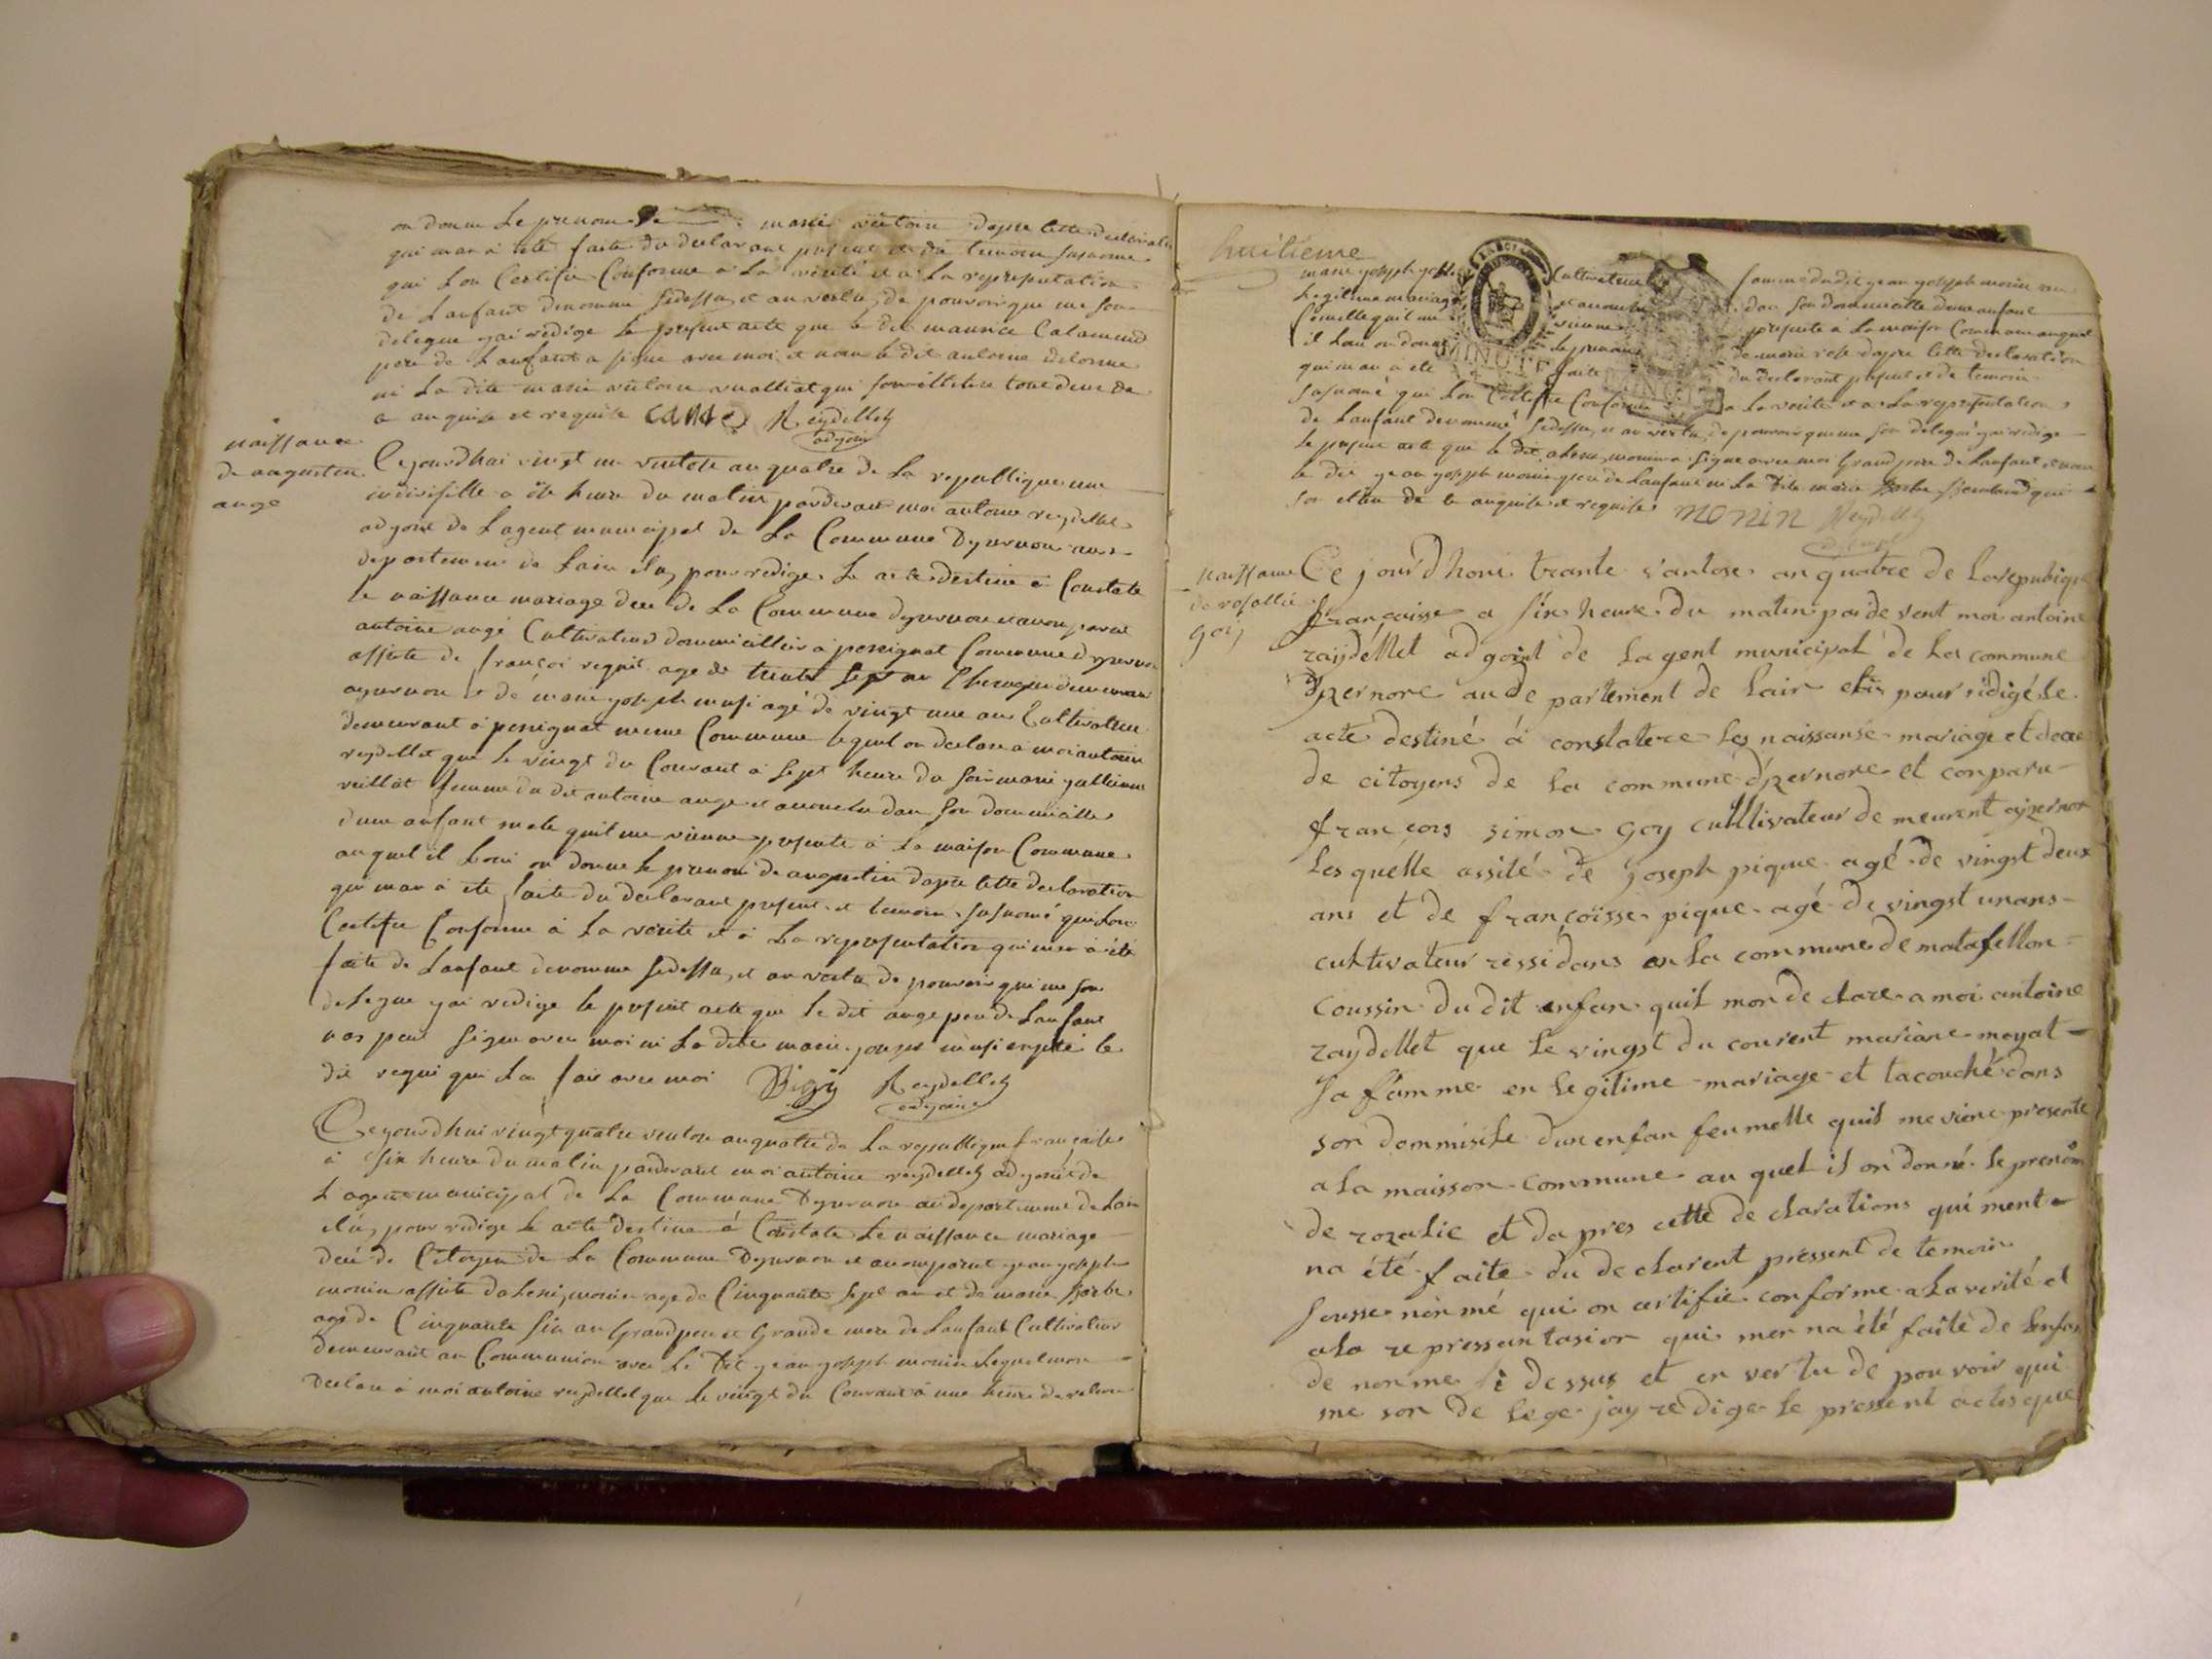 on donne le prenom de marie victoire dapre cette declaration
qui man a eté faite du declarant present et de temoin susnome
qui lon Certifie Conforme a la verité et a la representation
de lanfant denomme sidessu, et an vertu de pouvoir que me son
delegue jai redige le present acte que le dit maurice Calamand
pere de lanfant a signe avec moi et non le dit antoine delorme
ni la dite marie victoire vuilliat qui son illetere tout deux de
ce anquise et requise Reydellet
adjoin
naissance
de augustin
auge
Cejourdhui vingt un ventose an quatre de la republique une
indivisible a ôit heure du matin pardevant moi antoine reydellet
adjoint de lagent municipal de la Commune Dyzernore au
departement de lain elu, pour redige le acte destine a Constate
le naissance mariage dece de la Commune dyzernore et anconparut
antoine auge Cultivateur dommicillier a perignat Commune dyzernore
assiste de françoi reguit age de trente sept an Cherugien demeurant
ayzernore et de marie joseph musi agé de vingt une an Cultivateur
demeurant a perignat meme Commune lequel on declare a moi antoine
reydellet que le vingt du Courant a sept heure du soir marie jullienne
vuillat femme du dit antoine auge et acouche dan son dommicille
dune anfant male quil me vienne presente a la maison Commune
auquel il loui on donne le prenom de augustin dapre cette declaration
qui man a ete faite du declarant present et temoin susnomé qui lon
Certifie Conforme a la verite et a la representation qui men a été
faite de lanfant denomme sidessu, et an vertu de pouvoir qui me son
delegue jai redige le present acte que le dit auge pere de lanfant
nas peut signe avec moi ni la dite marie joseph musi enquié le
dit regui qui la fair avec moi Reydellet
adjoint
Cejourdhui vingt quatre ventose an quatre de la republique française
a six heure du matin pardevant moi antoine reydellet adjoint de
lagent municipal de la Commune Dyzernore au departement de lain
elu, pour redige le acte destine a Constate le naissance mariage
decé de Citoyen de la Commune Dyzernore et anconparut jean joseph
monin assiste dalexi, monin age de Cinquante sept an et de marie
age de Cinquante six an Grand pere et Grande mere de lanfant Cultivateur
demeurant an Communion avec le dit jean joseph monin lequel mon
declare a moi antoine reydellet que le vingt du Courant a une heure
huitieme
marie joseph Cultivateur famme du dit jean joseph monin
legitime mariage et acouche dan son dommicille dune anfant
femelle quil me vienne presente a la maison Commune auquel
il loui on donne le prenom de marie rose dapre cette declaration
qui man a ete faite du declarant present et de temoin
MINUTE
susnomé qui lon Certifie Conforme a la verite et a la representation
de lanfant denommé sidessu, et an vertu, de pouvoir que me son delegué jai redige
le present acte que le dit alexi monin a signe avec moi Grand pere de lanfant et non
le dit jean joseph monin pere de lanfant ni la dite marie qui
son de ce anquise et requise monin Reydellet
naissance
de rosallie
goy
Ce jourdhoui trante vantose an quatre de la republique
françaisse a six heure du matin pardevent moi antoine
raydellet adgoint de lagent municipal de la commune
dyzernore au departement de lain elu pour redigé le
acte destiné á constatere les naissanse mariage et dece
de citoyens de la commune dyzernore et conparu
françois simon goy culltivateur demeurent ayzernore
lesquelle assité de joseph pique agé de vingst deux
ans et de françoisse pique agé de vingst unans
cultivateur ressidans en la commune de matafellon
coussin du dit enfan quil mon declare a moi antoine
raydellet que le vingst du courent mariane moyat
sa famme en legitime mariage et lacouché dans
son dommisile dun enfan feumelle quil me viene presente
a la maisson commune au quel il on donné le prenom
de rozalie et dapres cette declarations qui ment
na été faite du declarent pressent de temoin
soussenonmé qui on certifie conforme a la verité et
a la repressantasion qui men na été faite de lenfan
denonme si dessus et en vertu de pouvoir qui
me son delege jay redige le pressent actes que